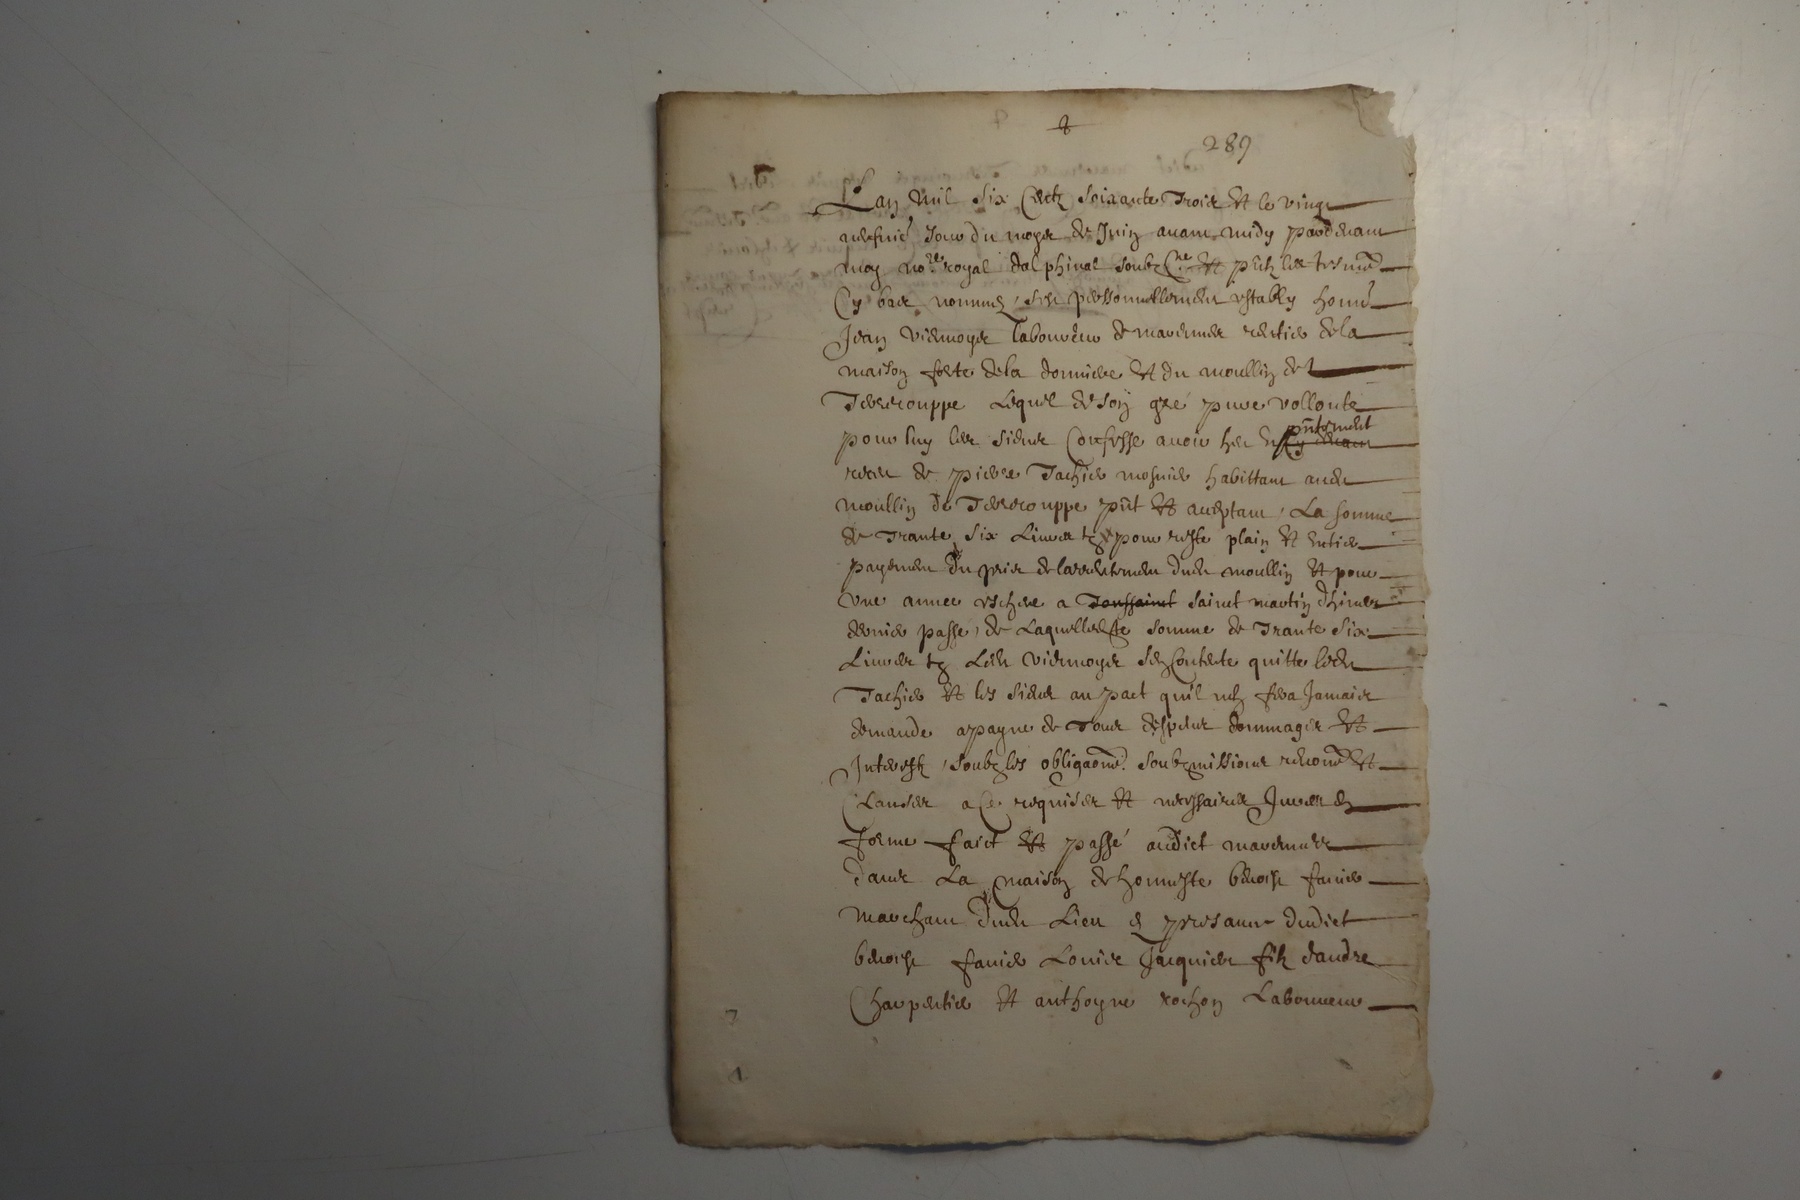 289
Lan mil six centz soixante trois et le vingt
neufvie Jour du moys de Juin avant midy pardevant
moy nore royal dalphinal soubzne et pntz les tesmē
Cy bas nommez, sest personnellement estably honē
Jean Viermoys laboureur de mavernes rentier de la
maison forte de la donniere et du moullin de
Tesrecouppe Lequel de son gré pure vollonte
pour luy les siens Confesse avoir heu pntement
receu de pierre Tachier mosnier habittant aud
moullin de Terrecouppe pnt et aceptant, La somme
de Trante six Livres tz pour reste plain et entier
payement du prix de larrentement dud moullin et pour
une annee escheue a Toussainct sainct martin dhiver
dernier passe, de Laquelle somme de Trante six
Livres tz Led Viermoys sen Contente quitte led
Tachier et les siens au pact quil nen fera Jamais
demande a payne de Tous despens dommages et
Interestz, soubz les obligaonē. soubzmissions renonē et
Clauses a Ce requises et necessaires Jurees en
forme faict et passé audict mavernes
dans La maison de honneste benoist favier
marchant dud Lieu en presance dudict
benoist favier Louis Jacquier filz dandre
Charpentier et anthoyne rochon Laboureur